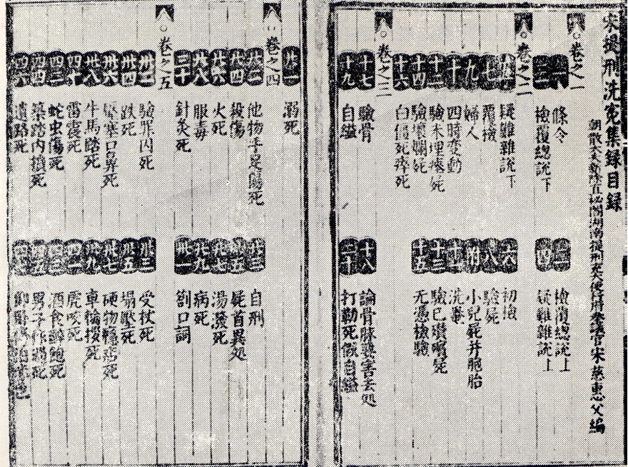 宋提刑洗冤集録目録
朝散大夫新除直秘閣湖南提刑充大使行府參議官宋慈惠父編
卷之一
一 條令 二 檢覆總說上
三 檢覆總說下 四 疑難雜說上
卷之二
五 疑難雜說下 六 初檢
七 覆檢 八 驗屍
九 婦人 附 小兒屍并胞胎
十 四時变動 十一 洗罨
十二 驗未埋瘞屍 十三 驗已攢殯屍
十四 驗壞爛屍 十五 无憑檢驗
十六 白僵死瘁死
卷之三
十七 驗骨 十八 論骨脉要害去処
十九 自縊 二十 打勒死假自縊
廿一 溺死
卷之四
廿二 他物手足傷死 廿三 自刑
廿四 殺傷 廿五 屍首異処
廿六 火死 廿七 湯潑死
廿八 服毒 廿九 病死
三十 針灸死 卅一 劄口詞
卷之五
卅二 驗罪囚死 卅三 受杖死
卅四 跌死 卅五 塌壓死
卅六 壓塞口鼻死 卅七 硬物癮痁死
卅八 牛馬踏死 卅九 車輪拶死
四十 雷震死 四一 虎咬死
四二 蛇虫傷死 四三 酒食醉飽死
四四 築踏内損死 四五 男子作過死
四六 遺路死